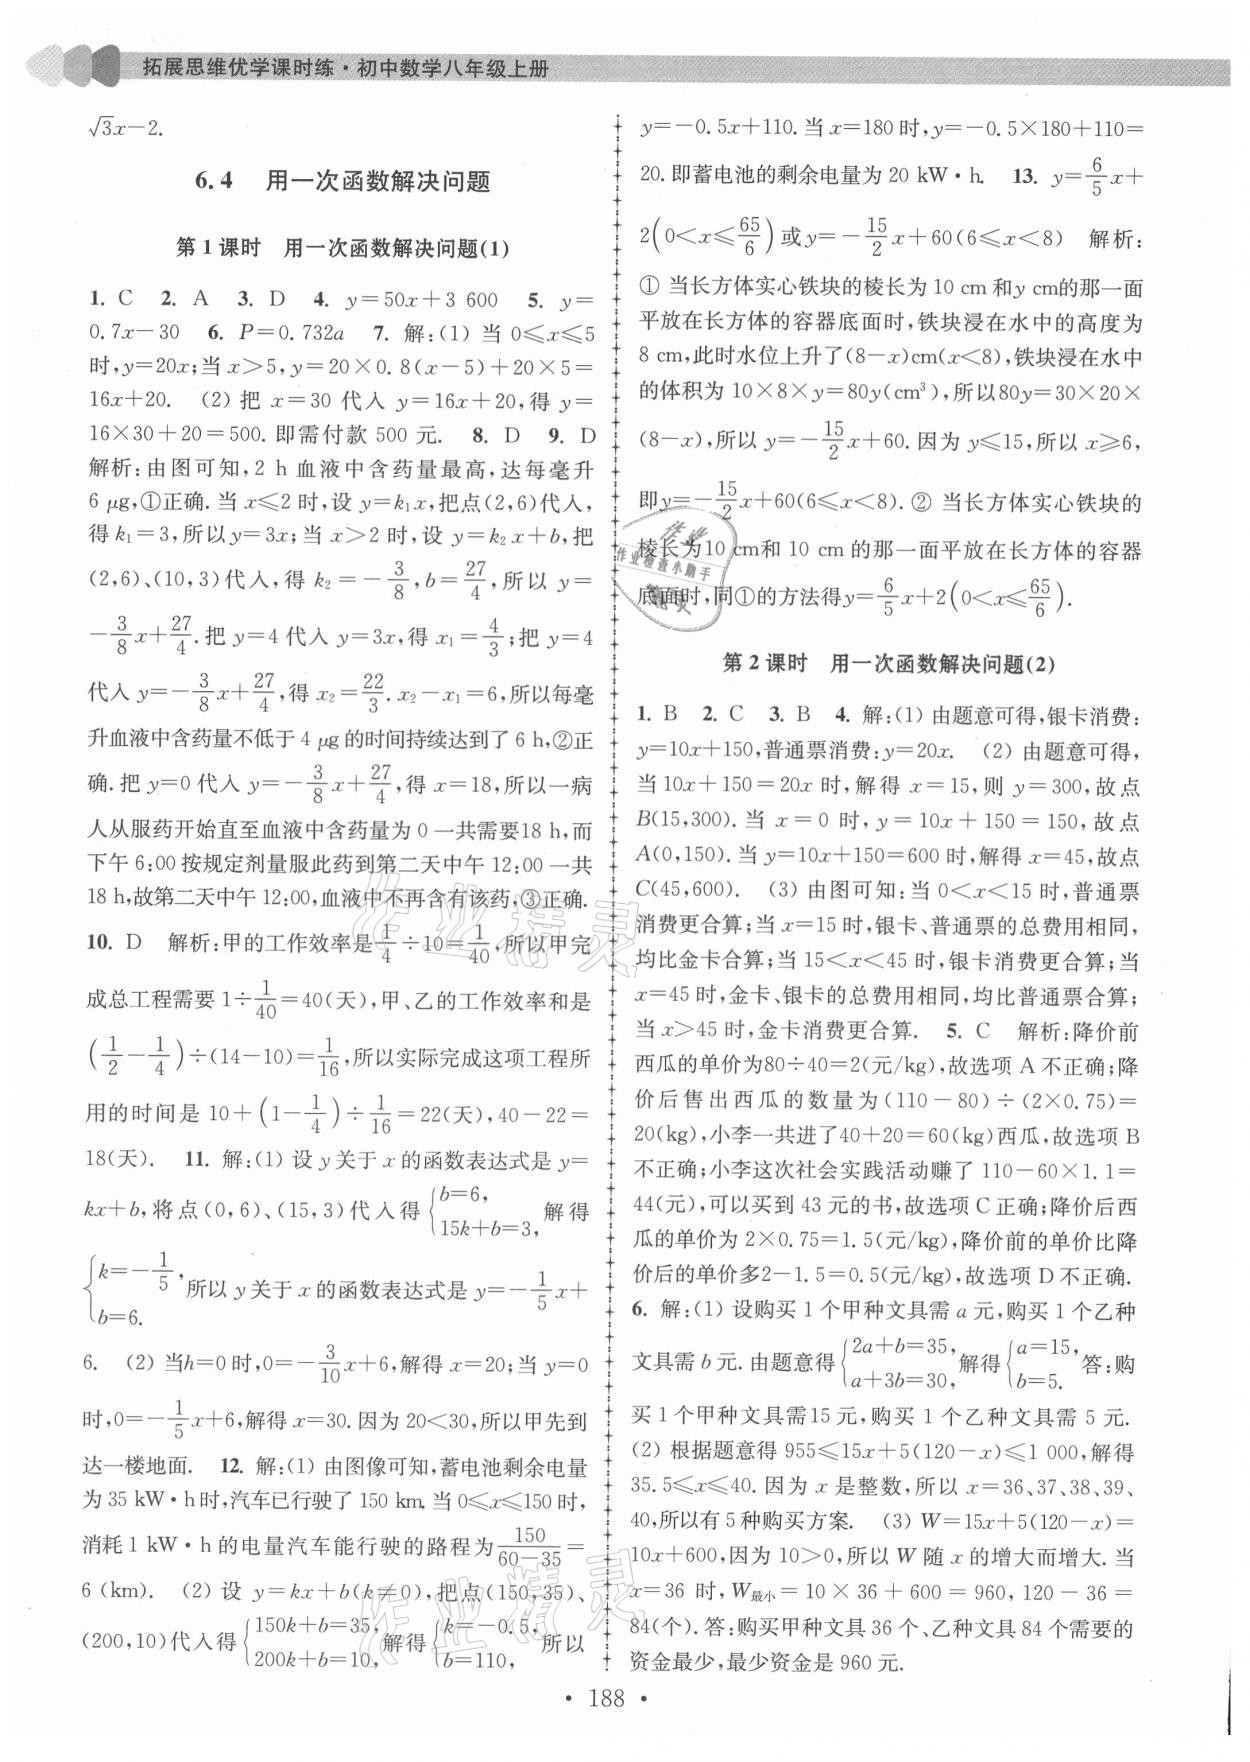 拓展思维优学课时练·初中数学八年级上册
√3x－2.
6.4　用一次函数解决问题
第1课时　用一次函数解决问题(1)
1. C　2. A　3. D　4. y＝50x＋3 600　5. y＝
0.7x－30　6. P＝0.732a　7. 解:(1) 当 0≤x≤5
时,y＝20x;当 x＞5,y＝20×0.8(x－5)＋20×5＝
16x＋20.　(2) 把 x＝30 代入 y＝16x＋20,得 y＝
16×30＋20＝500.即需付款 500 元.　8. D　9. D
解析:由图可知,2 h 血液中含药量最高,达每毫升
6 μg,①正确.当 x≤2 时,设 y＝k₁x,把点(2,6)代入,
得 k₁＝3,所以y＝3x;当 x＞2 时,设 y＝k₂x＋b,把
(2,6)、(10,3)代入,得 k₂＝－3/8,b＝27/4,所以 y＝
－3/8x＋27/4.把 y＝4 代入 y＝3x,得 x₁＝4/3;把 y＝4
代入 y＝－3/8x＋27/4,得 x₂＝22/3.x₂－x₁＝6,所以每毫
升血液中含药量不低于 4 μg 的时间持续达到了 6 h,②正
确.把 y＝0 代入 y＝－3/8x＋27/4,得 x＝18,所以一病
人从服药开始直至血液中含药量为 0 一共需要18 h,而
下午 6:00 按规定剂量服此药到第二天中午 12:00 一共
18 h,故第二天中午 12:00,血液中不再含有该药,③正确.
10. D　解析:甲的工作效率是1/4÷10＝1/40,所以甲完
成总工程需要 1÷1/40＝40(天),甲、乙的工作效率和是
(1/2－1/4)÷(14－10)＝1/16,所以实际完成这项工程所
用的时间是 10＋(1－1/4)÷1/16＝22(天),40－22＝
18(天).　11. 解:(1) 设 y 关于 x 的函数表达式是 y＝
kx＋b,将点(0,6)、(15,3)代入得{b＝6, 15k＋b＝3,解得
{k＝－1/5, b＝6.所以 y 关于 x 的函数表达式是 y＝－1/5x＋
6.　(2) 当h＝0 时,0＝－3/10x＋6,解得 x＝20;当 y＝0
时,0＝－1/5x＋6,解得 x＝30.因为 20＜30,所以甲先到
达一楼地面.　12. 解:(1) 由图像可知,蓄电池剩余电量
为 35 kW·h时,汽车已行驶了 150 km.当 0≤x≤150 时,
消耗1 kW·h 的电量汽车能行驶的路程为150/(60－35)＝
6 (km).　(2) 设 y＝kx＋b(k≠0),把点(150,35)、
(200,10)代入得{150k＋b＝35, 200k＋b＝10,解得{k＝－0.5, b＝110,所以
y＝－0.5x＋110.当 x＝180 时,y＝－0.5×180＋110＝
20.即蓄电池的剩余电量为 20 kW·h.　13. y＝6/5x＋
2(0＜x≤65/6)或 y＝－15/2x＋60(6≤x＜8)　解析:
① 当长方体实心铁块的棱长为 10 cm 和y cm的那一面
平放在长方体的容器底面时,铁块浸在水中的高度为
8 cm,此时水位上升了(8－x)cm(x＜8),铁块浸在水中
的体积为 10×8×y＝80y(cm³),所以80y＝30×20×
(8－x),所以 y＝－15/2x＋60.因为 y≤15,所以 x≥6,
即y＝－15/2x＋60(6≤x＜8).② 当长方体实心铁块的
棱长为10 cm和 10 cm 的那一面平放在长方体的容器
底面时,同①的方法得y＝6/5x＋2(0＜x≤65/6).
第2课时　用一次函数解决问题(2)
1. B　2. C　3. B　4. 解:(1) 由题意可得,银卡消费:
y＝10x＋150,普通票消费:y＝20x.　(2) 由题意可得,
当 10x＋150＝20x 时,解得 x＝15,则 y＝300,故点
B(15,300).当 x＝0 时,y＝10x＋150＝150,故点
A(0,150).当 y＝10x＋150＝600 时,解得 x＝45,故点
C(45,600).　(3) 由图可知:当 0＜x＜15 时,普通票
消费更合算;当 x＝15 时,银卡、普通票的总费用相同,
均比金卡合算;当 15＜x＜45 时,银卡消费更合算;当
x＝45 时,金卡、银卡的总费用相同,均比普通票合算;
当 x＞45 时,金卡消费更合算.　5. C　解析:降价前
西瓜的单价为80÷40＝2(元/kg),故选项 A 不正确;降
价后售出西瓜的数量为(110－80)÷(2×0.75)＝
20(kg),小李一共进了40＋20＝60(kg)西瓜,故选项 B
不正确;小李这次社会实践活动赚了 110－60×1.1＝
44(元),可以买到 43 元的书,故选项 C 正确;降价后西
瓜的单价为 2×0.75＝1.5(元/kg),降价前的单价比降
价后的单价多2－1.5＝0.5(元/kg),故选项 D 不正确.
6. 解:(1) 设购买 1 个甲种文具需 a 元,购买 1 个乙种
文具需 b 元.由题意得{2a＋b＝35, a＋3b＝30,解得{a＝15, b＝5.答:购
买 1 个甲种文具需15 元,购买 1 个乙种文具需 5 元.
(2) 根据题意得 955≤15x＋5(120－x)≤1 000,解得
35.5≤x≤40.因为 x 是整数,所以 x＝36、37、38、39、
40,所以有 5 种购买方案.　(3) W＝15x＋5(120－x)＝
10x＋600,因为 10＞0,所以 W 随 x 的增大而增大.当
x＝36 时,W最小＝10×36＋600＝960,120－36＝
84(个).答:购买甲种文具 36 个、乙种文具 84 个需要的
资金最少,最少资金是 960 元.
作业
作业检查小助手
作业精灵
作业精灵
·188·